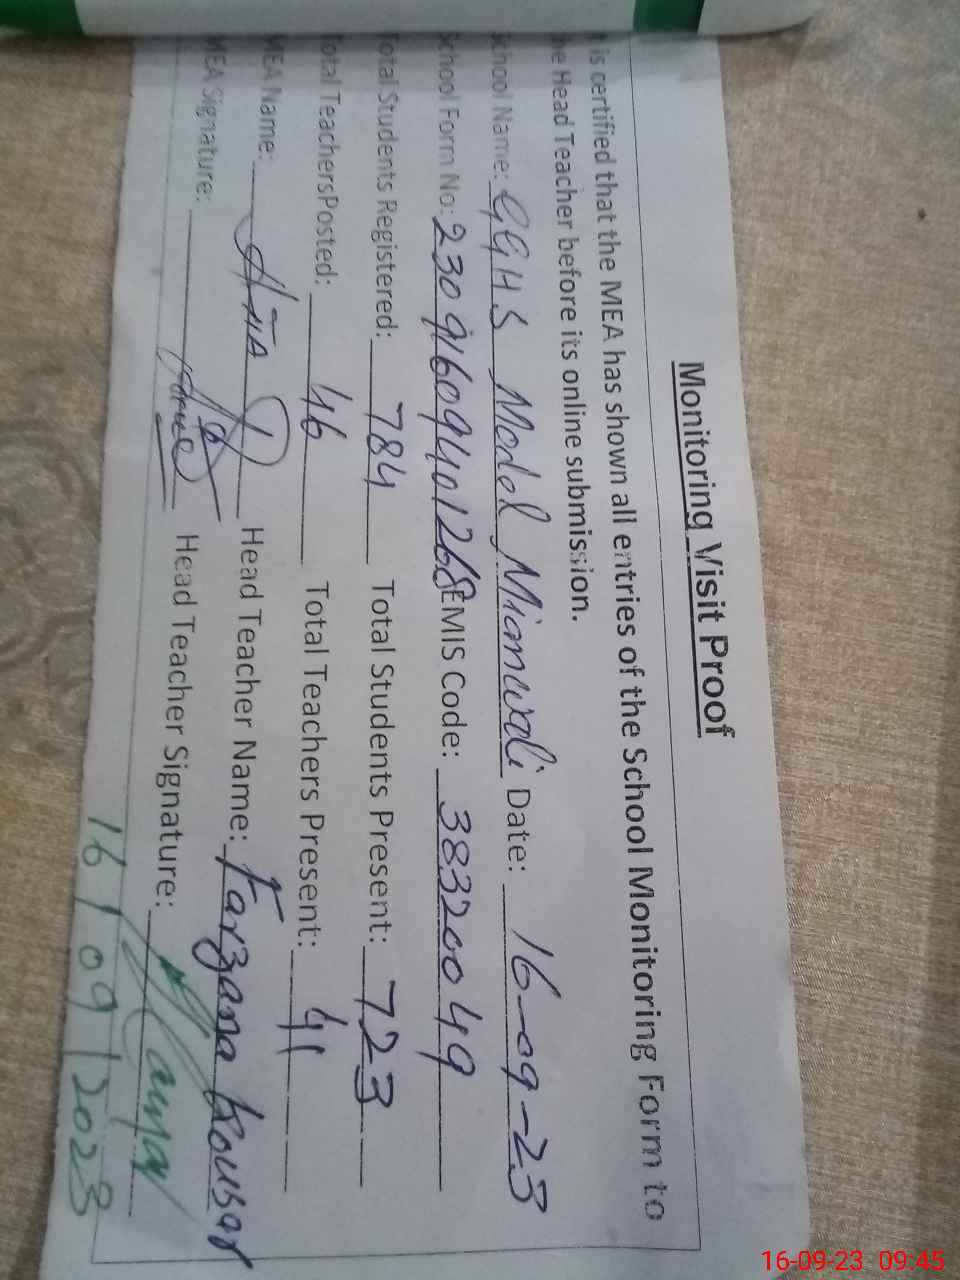 Monitoring Visit Proof
t is certified that the MEA has shown all entries of the School Monitoring Form to
he Head Teacher before its online submission.
School Name: GGHS Model Mianwali Date: 16-09-23
School Form No: 23091609401268 EMIS Code: 38320049
Total Students Registered: 784 Total Students Present: 723
Total TeachersPosted: 46 Total Teachers Present: 41
MEA Name: Head Teacher Name: Farzana Kousar
MEA Signature: Head Teacher Signature:
16/09/2023
16-09-23 09:45